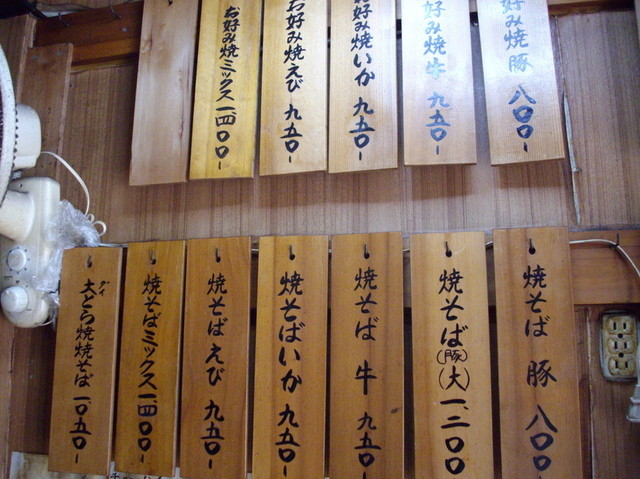 お好み焼豚 八〇〇-
お好み焼牛 九五〇-
お好み焼いか 九五〇-
お好み焼えび 九五〇-
お好み焼ミックス 一、四〇〇-
焼そば 豚 八〇〇-
焼そば(豚)(大) 一、二〇〇
焼そば 牛 九五〇-
焼そばいか 九五〇-
焼そばえび 九五〇-
焼そばミックス 一、四〇〇-
大とら焼焼そば 一、〇五〇-